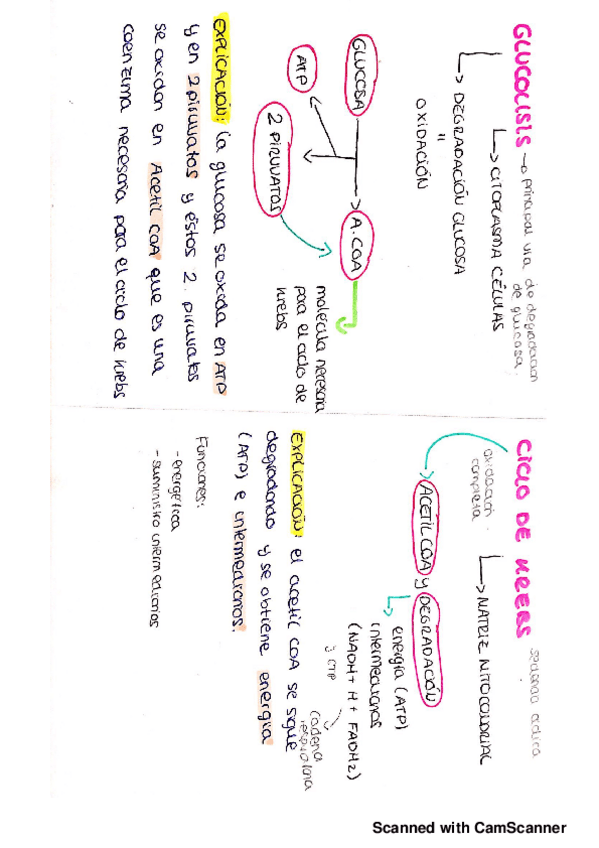 GLUCOLISIS → principal vía de degradación
de glucosa.
CITOPLASMA CÉLULAS
DEGRADACIÓN GLUCOSA
"
OXIDACIÓN
GLUCOSA
A. COA
ATP
2 PIRUVATOS
molécula necesaria
para el ciclo de
Krebs
EXPLICACIÓN: la glucosa se oxida en ATP
y en 2 piruvatos y éstos 2 piruvatos
se oxidan en Acetil COA que es una
coenzima necesaria para el ciclo de Krebs
CICLO DE KREBS
oxidación
completa
MATRIZ MITOCONDRIAL
ACETIL COA y DEGRADACIÓN
energía (ATP)
intermediarios
(NADH + H + FADH2)
y GTP
cadena
respiratoria
EXPLICACIÓN: el acetil COA se sigue
degradando y se obtiene energía
(ATP) e intermediarios.
Funciones:
- energética
- suministro intermediarios
Scanned with CamScanner